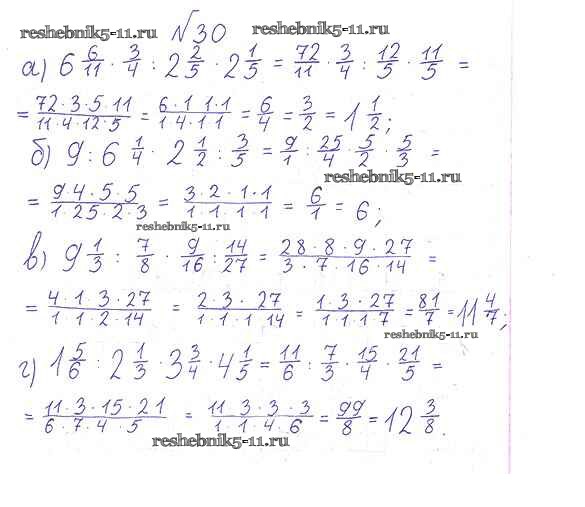 № 30
reshebnik5-11.ru reshebnik5-11.ru
а) 6 6/11 · 3/4 : 2 2/5 · 2 1/5 = 72/11 · 3/4 : 12/5 · 11/5 =
= 72·3·5·11/11·4·12·5 = 6·1 1·1/1 4·1 1 = 6/4 = 3/2 = 1 1/2;
б) 9 : 6 1/4 · 2 1/2 : 3/5 = 9/1 : 25/4 · 5/2 · 5/3 =
reshebnik5-11.ru
= 9 4 · 5 · 5/1 · 25 · 2 · 3 = 3 · 2 · 1 · 1/1 · 1 · 1 · 1 = 6/1 = 6;
reshebnik5-11.ru
в) 9 1/3 : 7/8 · 9/16 : 14/27 = 28 · 8 · 9 · 27/3 · 7 · 16 · 14 =
= 4 · 1 3 · 27/1 1 · 2 · 14 = 2 · 3 · 27/1 · 1 · 1 14 = 1 · 3 · 27/1 · 1 · 1 7 = 81/7 = 11 4/7;
reshebnik5-11.ru
г) 1 5/6 : 2 1/3 · 3 3/4 · 4 1/5 = 11/6 : 7/3 · 15/4 · 21/5 =
= 11 · 3 · 15 · 21/6 · 7 · 4 · 5 = 11 3 · 3 · 3/1 · 1 · 4 · 6 = 99/8 = 12 3/8.
reshebnik5-11.ru